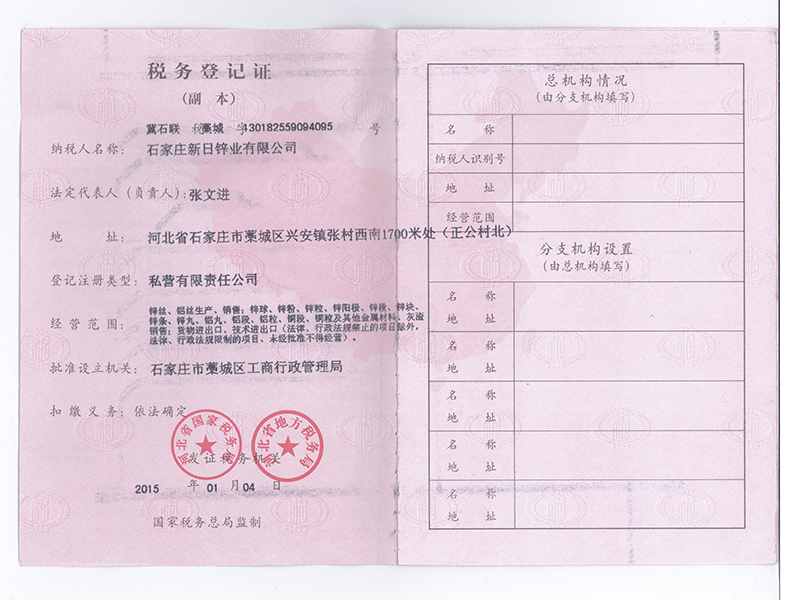 税务登记证
（副 本）
冀石联 税 藁城 字 130182559094095 号
纳税人名称： 石家庄新日锌业有限公司
法定代表人（负责人）：张文进
地 址： 河北省石家庄市藁城区兴安镇张村西南1700米处（正公村北）
登记注册类型： 私营有限责任公司
经营范围：
锌丝、铝丝生产、销售；锌球、锌粉、锌粒、锌阳极、锌段、锌块、
锌条、锌丸、铝丸、铝段、铝粒、铜段、铜粒及其他金属材料、灰渣
销售；货物进出口、技术进出口（法律、行政法规禁止的项目除外，
法律、行政法规限制的项目、未经批准不得经营）。
批准设立机关： 石家庄市藁城区工商行政管理局
扣缴义务：依法确定
河北省国家税务局
河北省地方税务局
发证税务机关
2015 年 01 月 04 日
国家税务总局监制
总机构情况
（由分支机构填写）
名 称
纳税人识别号
地 址
经营范围
分支机构设置
（由总机构填写）
名 称
地 址
名 称
地 址
名 称
地 址
名 称
地 址
名 称
地 址